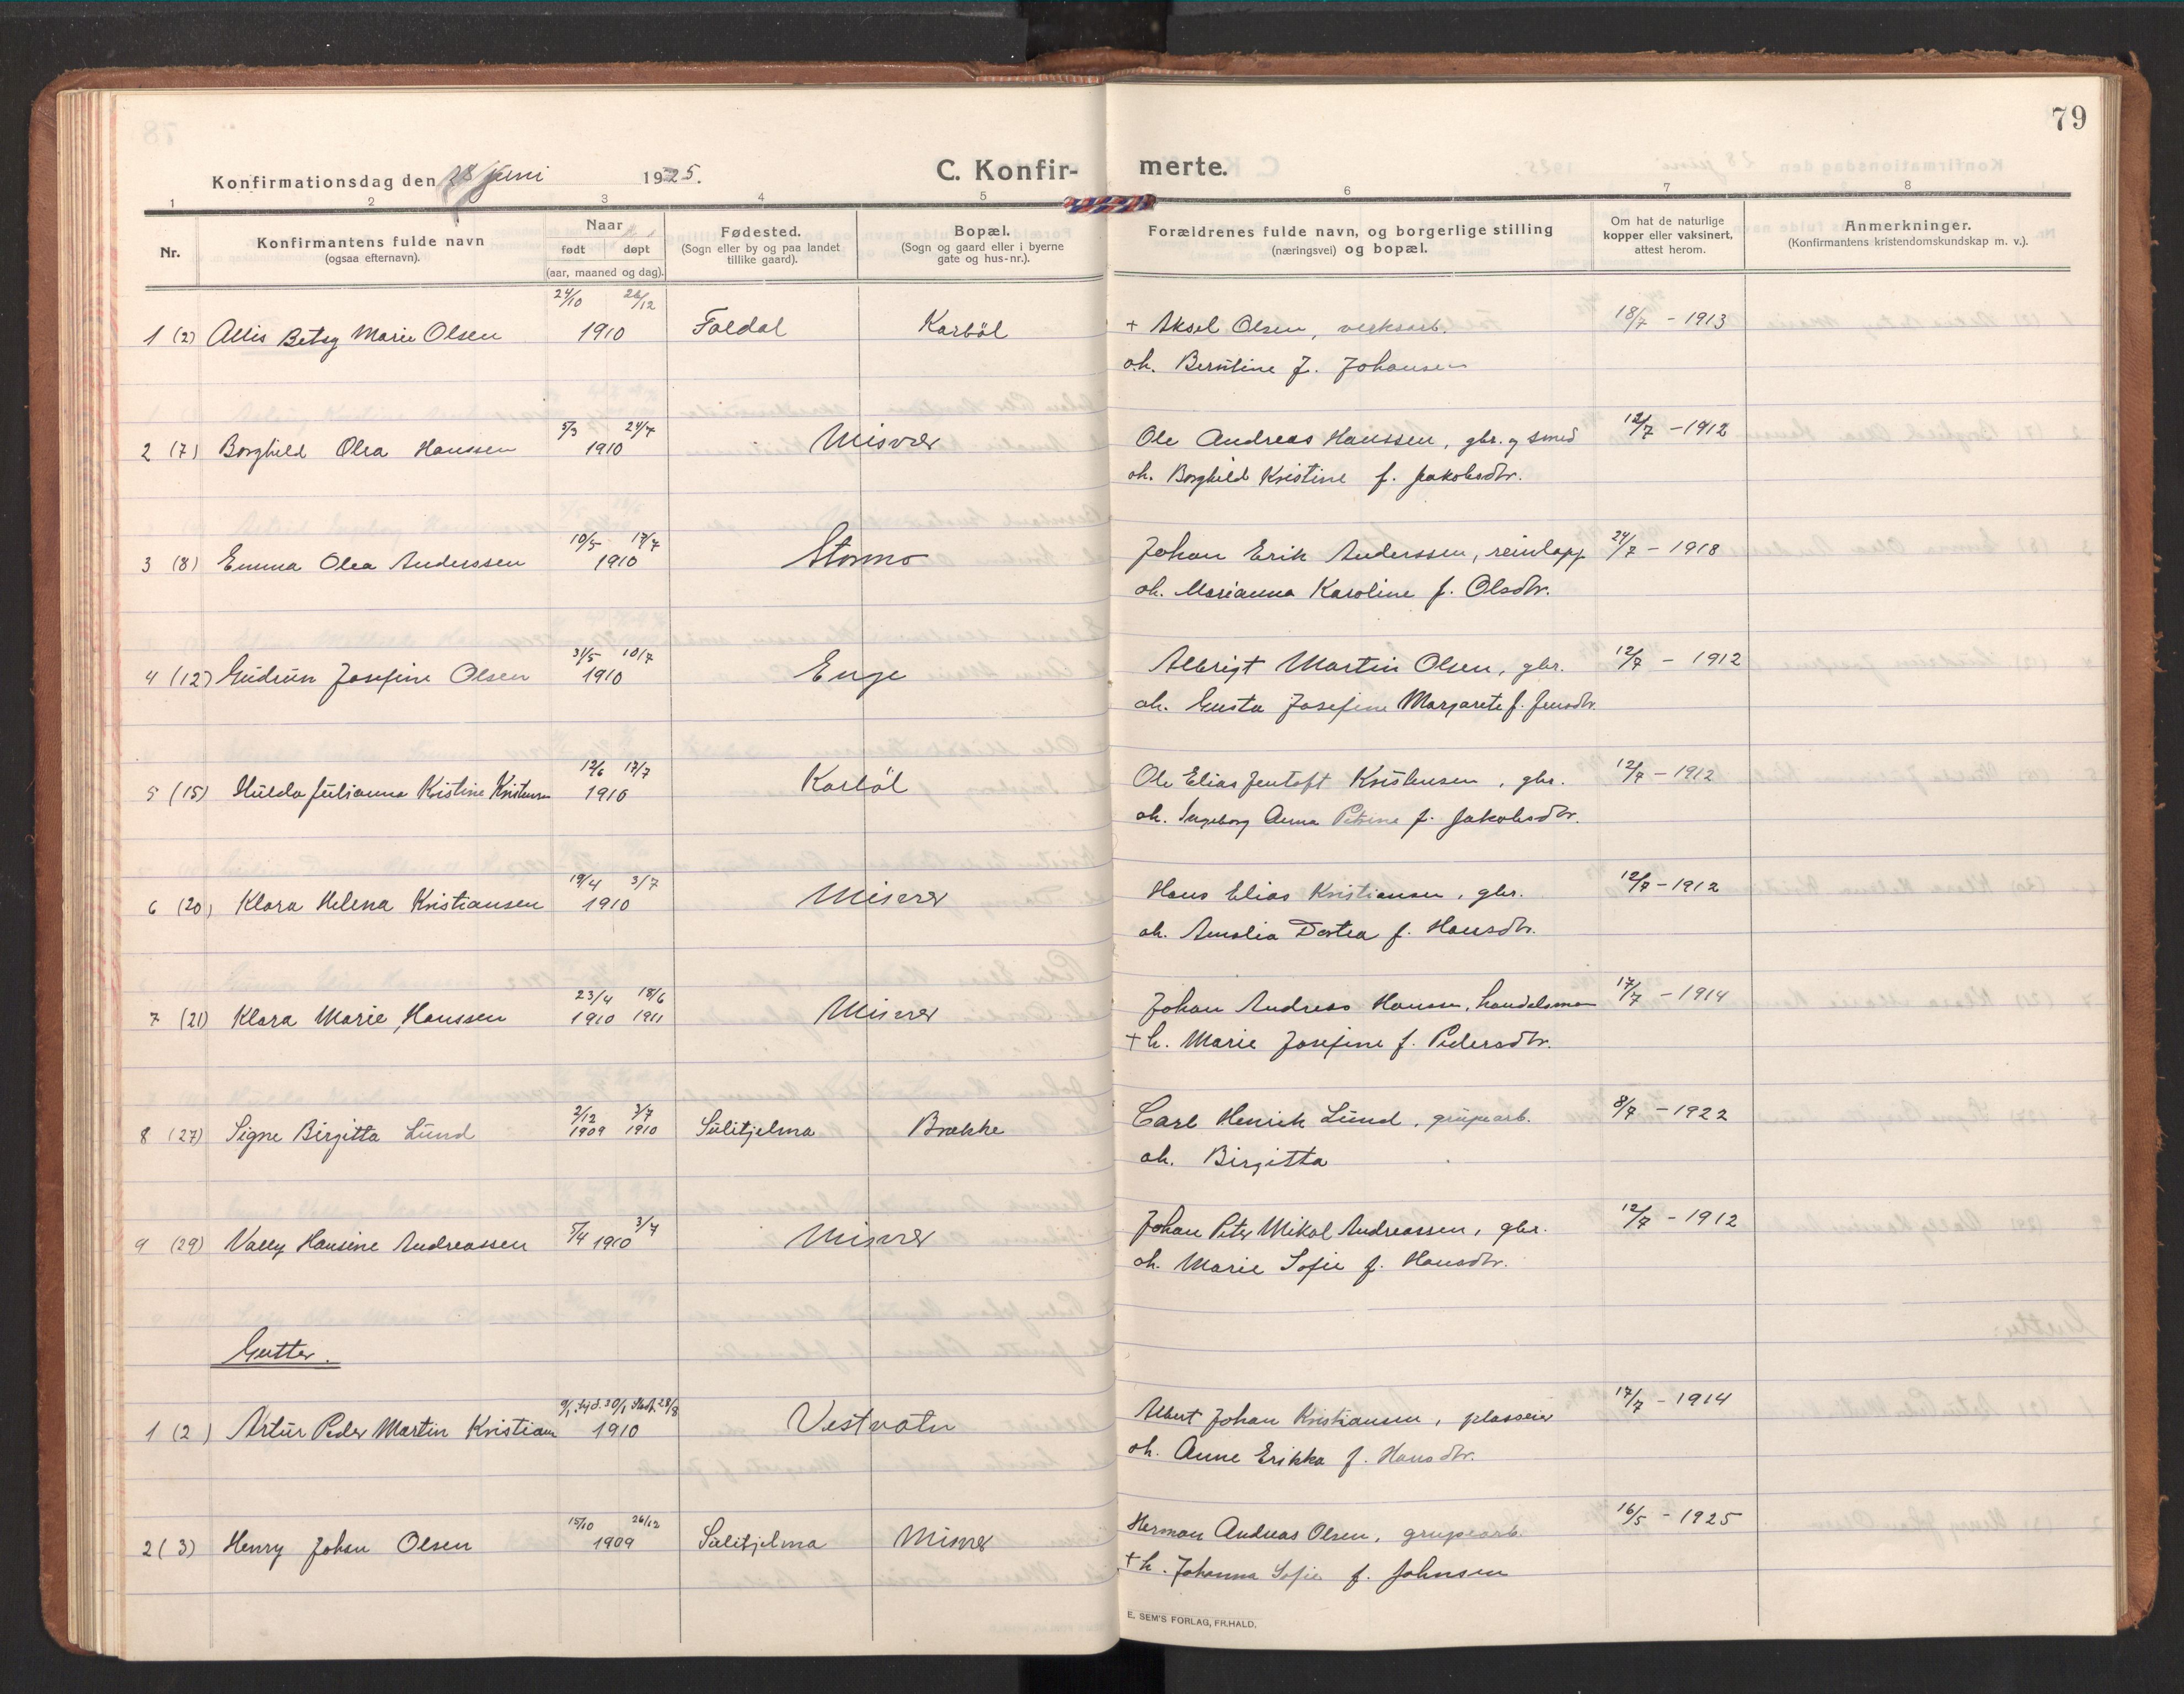 79
Konfirmationsdag den 28 juni 1925.
C. Konfir- merte.
1 2 3 4 5 6 7 8
Nr.
Konfirmantens fulde navn
(ogsaa efternavn).
Naar
født døpt
(aar, maaned og dag).
Fødested.
(Sogn eller by og paa landet
tillike gaard).
Bopæl.
(Sogn og gaard eller i byerne
gate og hus-nr.).
Forældrenes fulde navn, og borgerlige stilling
(næringsvei) og bopæl.
Om hat de naturlige
kopper eller vaksinert,
attest herom.
Anmerkninger.
(Konfirmantens kristendomskundskap m. v.).
24/10 26/12
1 (2) Allis Betsy Marie Olsen 1910 Foldal Karbøl + Aksel Olsen, verksarb. 18/7 - 1913
oh. Berntine f. Johansen
5/3 24/7
2 (7) Borghild Olea Hanssen 1910 Misvær Ole Andreas Hanssen, gbr. og smed 12/7 - 1912
oh. Borghild Kristine f. Jakobsdtr.
10/5 17/7
3 (8) Emma Olea Anderssen 1910 Stormo Johan Erik Anderssen, reinlapp 24/7 - 1918
oh. Marianna Karoline f. Olsdtr.
31/5 10/7
4 (12) Gudrun Josefine Olsen 1910 Enge Albrigt Martin Olsen, gbr. 12/7 - 1912
oh. Gusta Josefine Margarete f. Jensdtr.
12/6 17/7
5 (15) Hulda Julianna Kristine Kristensen 1910 Karbøl Ole Elias Jentoft Kristensen, gbr. 12/7 - 1912
oh. Ingeborg Anna Petrine f. Jakobsdtr.
19/4 3/7
6 (20) Klara Helena Kristiansen 1910 Misvær Hans Elias Kristiansen, gbr. 12/7 - 1912
oh. Amalia Dortea f. Hansdtr.
23/4 18/6
7 (21) Klara Marie Hanssen 1910 1911 Misvær Johan Andreas Hanssen, handelsman 17/7 - 1914
+ h. Marie Josefine f. Pedersdtr.
2/12 3/7
8 (27) Signe Birgitta Lund 1909 1910 Sulitjelma Brække Carl Henrik Lund, grubearb. 8/7 - 1922
oh. Birgitta
9 (29) Vally Hansine Andreassen 5/4 1910 3/7 Misvær Johan Peter Mikal Andreassen, gbr. 12/7 - 1912
oh. Marie Sofie f. Hansdtr.
Gutter.
9/1 hjd. 30/1 Stadf. 28/8
1 (2) Artur Peder Martin Kristians 1910 Vestvatn Albert Johan Kristiansen, plasseier 17/7 - 1914
oh. Anne Erikka f. Hansdtr.
15/10 26/12
2 (3) Henry Johan Olsen 1909 Sulitjelma Misvær Herman Andreas Olsen, grubearb. 16/5 - 1925
+ h. Johanna Sofie f. Johnsen
E. SEM'S FORLAG, FR.HALD.